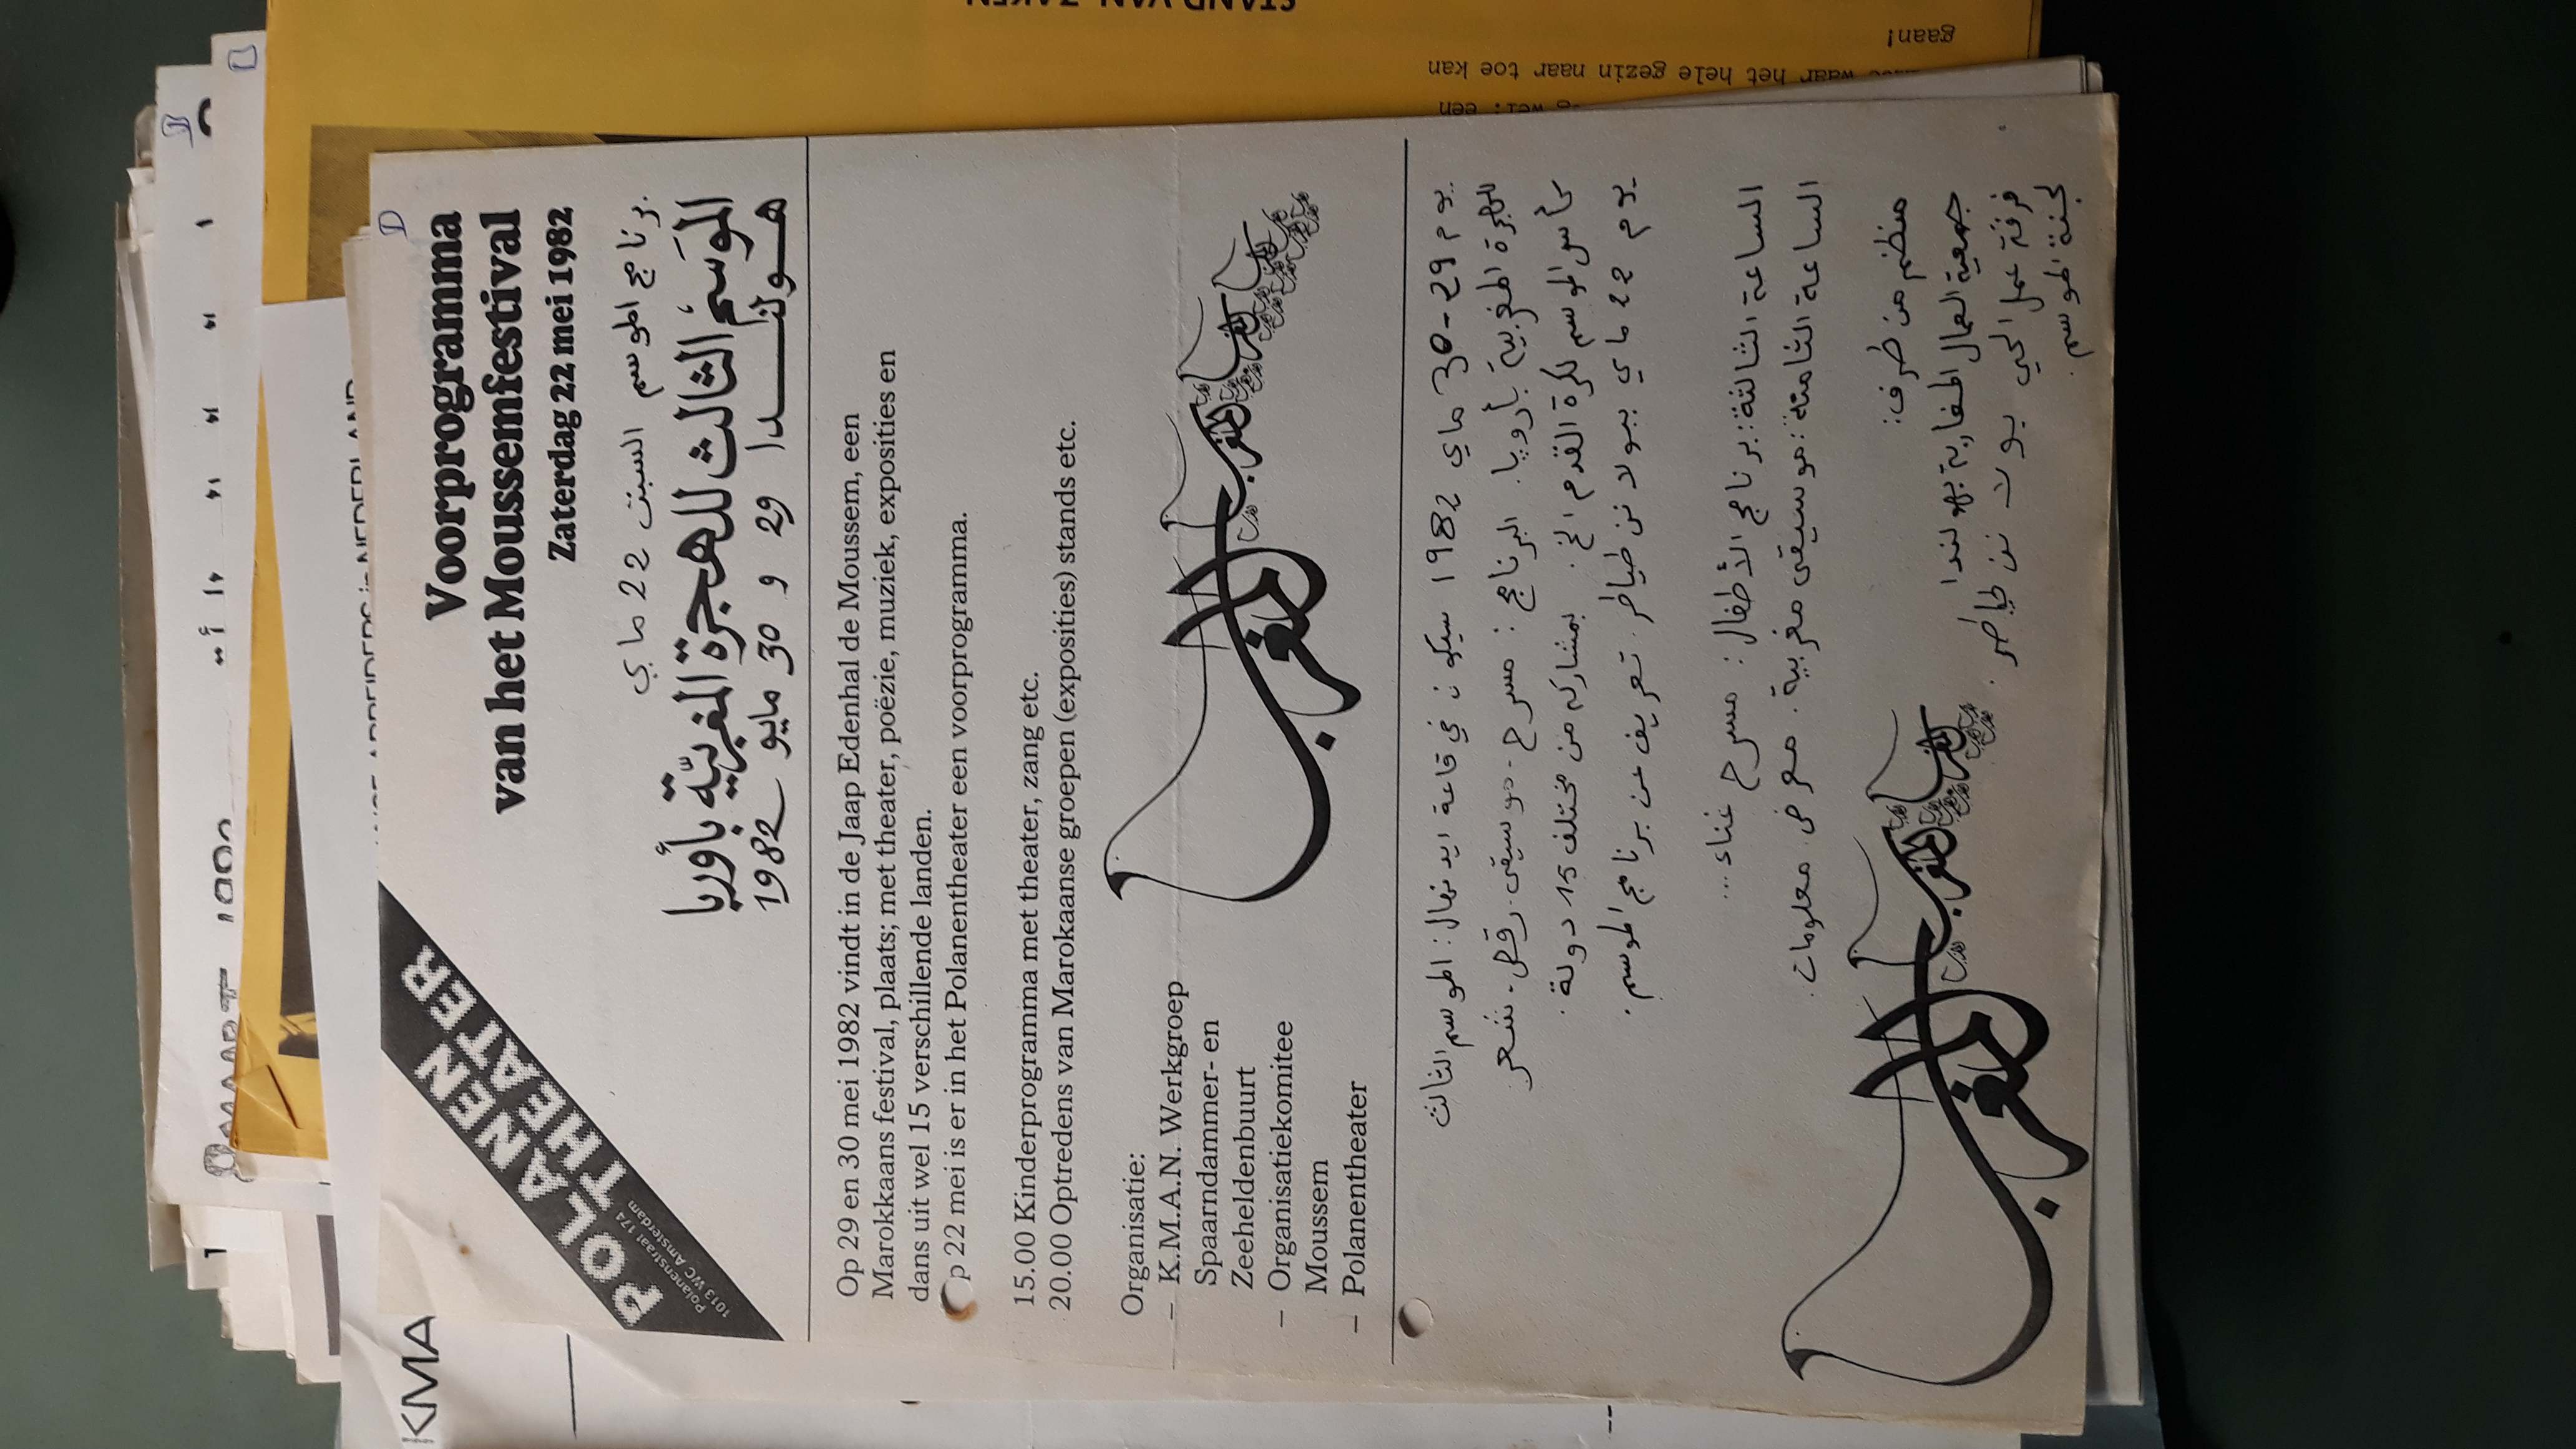 8 MAART 1982
KMA
ARBEIDERS in NEDERLAND
D
POLANEN
THEATER
Polanenstraat 174
1013 WC Amsterdam
Voorprogramma
van het Moussemfestival
Zaterdag 22 mei 1982
برنامج الموسم السبت 22 ماي
الموسم الثالث للهجرة المغربيّة بأوربا
هولندا 29 و 30 مايو 1982
Op 29 en 30 mei 1982 vindt in de Jaap Edenhal de Moussem, een
Marokkaans festival, plaats; met theater, poëzie, muziek, exposities en
dans uit wel 15 verschillende landen.
p 22 mei is er in het Polanentheater een voorprogramma.
15.00 Kinderprogramma met theater, zang etc.
20.00 Optredens van Marokaanse groepen (exposities) stands etc.
Organisatie:
– K.M.A.N. Werkgroep
Spaarndammer- en
Zeeheldenbuurt
– Organisatiekomitee
Moussem
– Polanentheater
المغرب
يوم 29-30 ماي 1982 سيكون في قاعة ايدنهال: الموسم الثالث
للهجرة المغربية بأروپا. البرنامج: مسرح - موسيقى - رقص - شعر
كأس الموسم لكرة القدم الخ. بمشاركه من مختلف 15 دولة.
يوم 22 ماي ببولانن طياطر. تعريف عن برنامج الموسم.
الساعة الثالثة: برنامج الأطفال: مسرح غناء...
الساعة الثامنة: موسيقى مغربية. معرض. معلومات.
منظم من طرف:
جمعية العمال المغاربة بهولندا
فرقة عمل الحي بولانن طياطر.
لجنة الموسم.
المغرب
STAND VAN ZAKEN
waar het hele gezin naar toe kan
gaan!